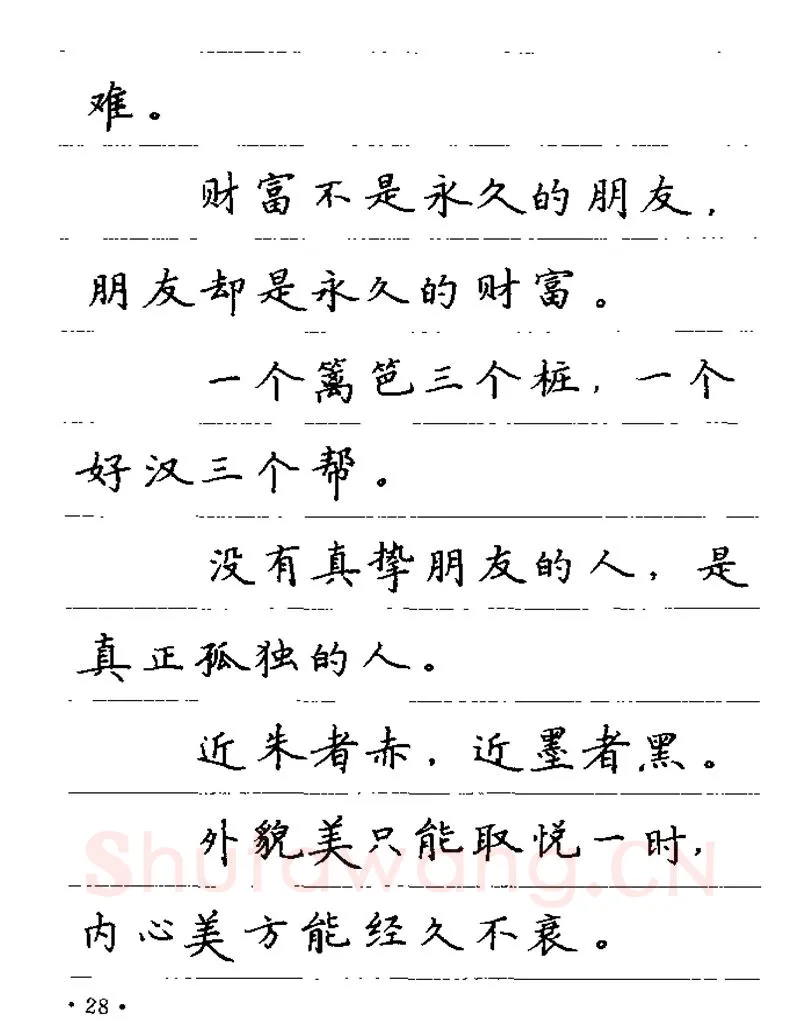 难。
财富不是永久的朋友，
朋友却是永久的财富。
一个篱笆三个桩，一个
好汉三个帮。
没有真挚朋友的人，是
真正孤独的人。
近朱者赤，近墨者黑。
外貌美只能取悦一时，
内心美方能经久不衰。
Shufawang.CN
·28·